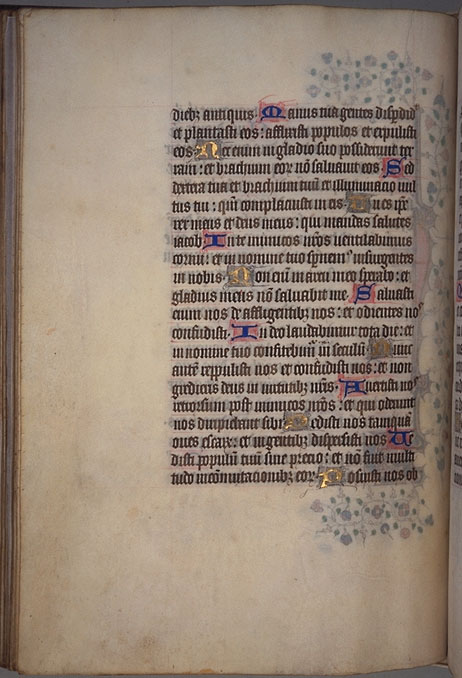 diebz antiquis. Manus tua gentes disp̄did
et plantasti eos: afflixisti populos et expulisti
eos. Nec enim in gladio suo possiderunt ter
ram: et brachium eor̄ nō saluauit eos. Sed
dextera tua et brachium tuū: et illuminacio uul
tus tui: qm̄ complacuisti in eis. Tu es ip̄e
rex meus et deus meus: qui mandas salutes
iacob. In te inimicos nr̄os uentilabimus
cornu: et in nomine tuo sp̄nem⁹ insurgentes
in nobis. Non em̄ in arcu meo sperabo: et
gladius meus nō saluabit me. Saluasti
enim nos de affligentibz nos: et odientes no⁹
confudisti. In deo laudabimur tota die: et
in nomine tuo confitebim̄ in seculū. Nunc
autē reppulisti nos et confudisti nos: et non
egredieris deus in uirtutibz nr̄is. Auertisti no⁹
retrorsum post inimicos nr̄os: et qui oderunt
nos diripiebant sibi. Dedisti nos tamquā
oues escarx: et in gentibz dispersisti nos. Ue
didisti populū tuū sine precio: et nō fuit multi
tudo in cōmutacionibz eor̄. Posuisti nos ob